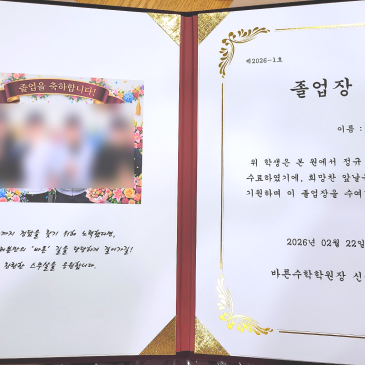 졸업을 축하합니다!
정답을 찾기 위해 노력했다면,
'바른' 길을 당당하게 걸어가길!
찬란한 스무살을 응원합니다.
제2026-1호
졸업장
이름 :
위 학생은 본 원에서 정규
수료하였기에, 희망찬 앞날
기원하며 이 졸업장을 수여
2026년 02월 22일
바른수학학원장 신